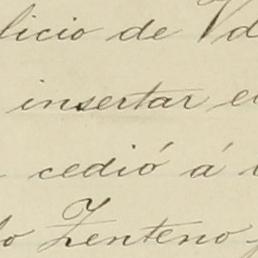 licio de Vd
insertar e
cedió á
lo Zenteno